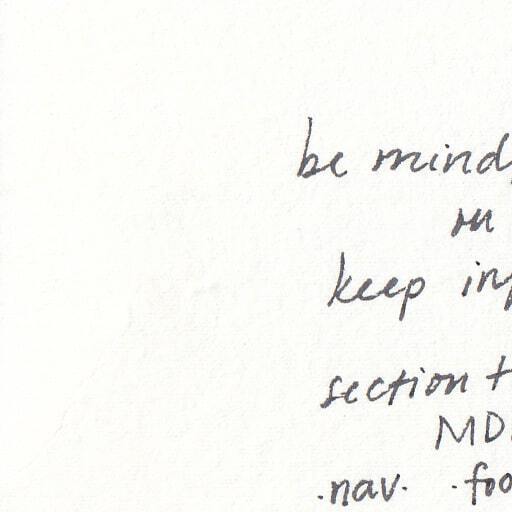 be mind
keep
section
MD
.nav. .foo